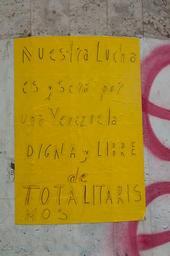 Nuestra Lucha
es y será por
una Venezuela
DIGNA y LIBRE
de
TOTALITARIS
MOS